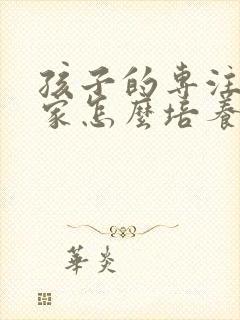 孩子的專注
家怎麼培養
華炎